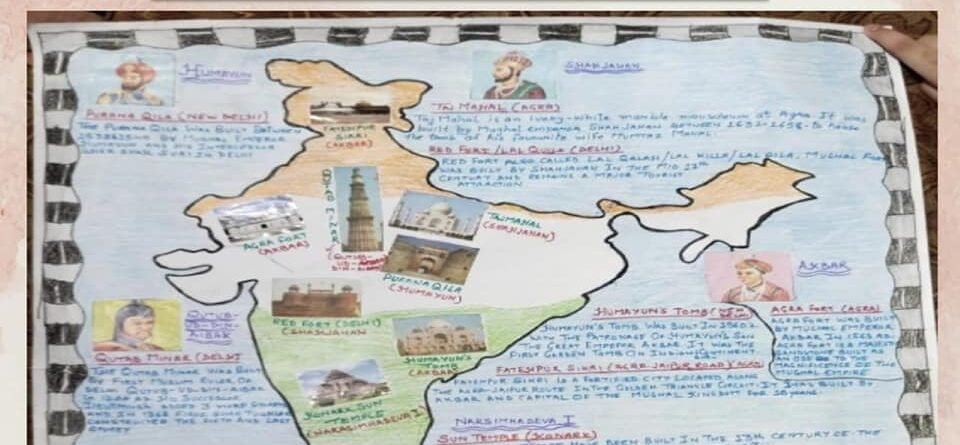 HUMAYUN
PURANA QILA (NEW DELHI)
THE PURANA QILA WAS BUILT BETWEEN
SHAHJAHAN
TAJ MAHAL (AGRA)
TAJ MAHAL IS AN IVORY-WHITE MARBLE MAUSOLEUM AT AGRA. IT WAS
BUILT BY MUGHAL EMPEROR SHAHJAHAN BETWEEN 1632-1658 TO HOUSE
THE TOMB OF HIS FAVOURITE WIFE MUMTAJ MAHAL
RED FORT/LAL QUILA (DELHI)
RED FORT ALSO CALLED LAL QALASI/LAL KILLA/LAL QILA. MUGHAL FORT
WAS BUILT BY SHAHJAHAN IN THE MID 17th
CENTURY AND REMAINS A MAJOR TOURIST
ATTRACTION
FATEHPUR
SIKRI
(AKBAR)
QUTAB MINAR
(QUTUB-
UD-
DIN-
AGRA FORT
(AKBAR)
TAJMAHAL
(SHAHJAHAN)
PURANA QILA
(HUMAYUN)
RED FORT (DELHI)
SHAHJAHAN
HUMAYUN'S
TOMB
(AKBAR)
KONARK SUN
TEMPLE
(NARASIMHADEVA I)
QUTUB-
UD-DIN-
AIBAK
QUTAB MINAR (DELHI)
THE QUTAB MINAR WAS BUILT
BY FIRST MUSLIM RULER OF
DELHI QUTUB-UD-DIN-AIBAK
CONSTRUCTED THE FIFTH AND LAST
STOREY
AKBAR
AGRA FORT (AGRA)
AGRA FORT WAS BUILT
BY MUGHAL EMPEROR
MAGNIFICENCE OF THE
MUGHAL EMPIRE
HUMAYUN'S TOMB
HUMAYUN'S TOMB WAS BUILT IN
WITH THE PATRONAGE OF HUMAYUN'S SON
THE GREAT EMPEROR AKBAR IT WAS THE
FIRST GARDEN TOMB ON INDIAN
FATEHPUR SIKRI (AGRA JAIPUR ROAD) AGRA
FATEHPUR SIKRI IS A FORTIFIED CITY LOCATED ALONG
THE AGRA-JAIPUR ROUTE IN THE GOLDEN TRIANGLE CIRCUIT. IT WAS BUILT BY
AKBAR AND CAPITAL OF THE MUGHAL KINGDOM FOR
NARSIMHADEVA I
SUN TEMPLE (KONARK)
BEEN BUILT IN THE 13th CENTURY OF THE